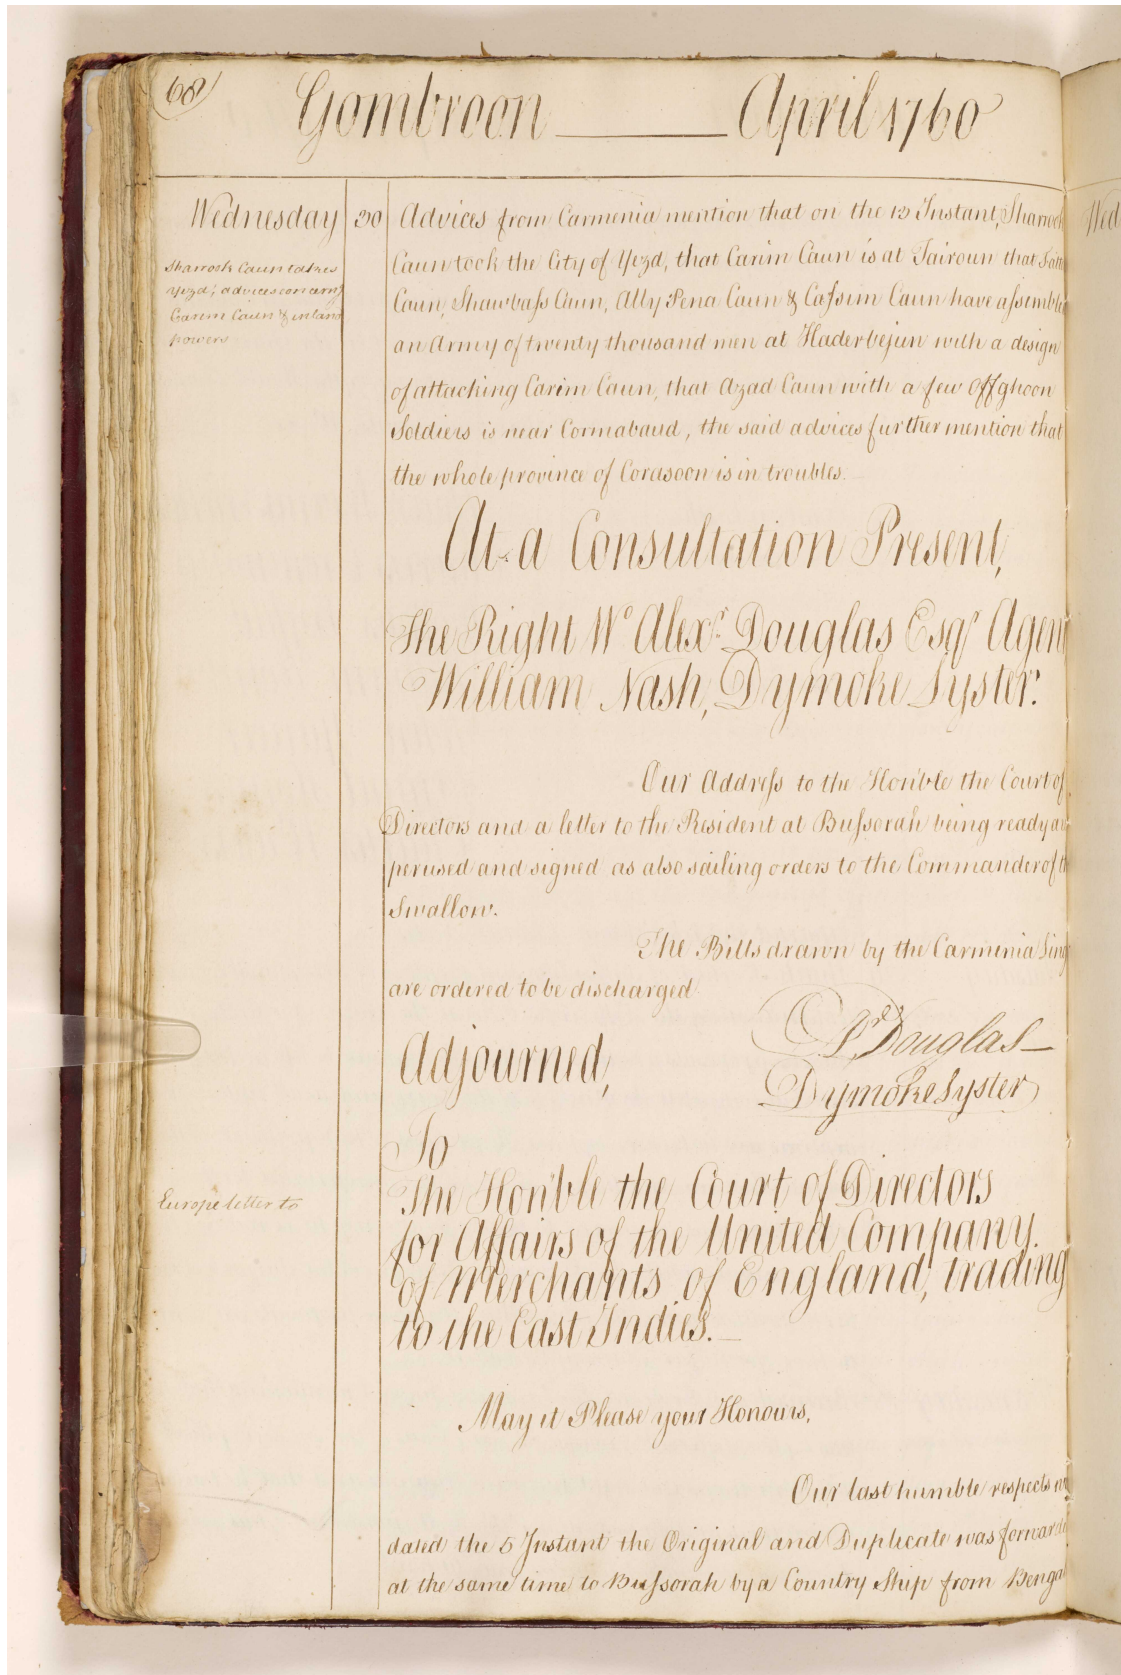 68
Gombroon April 1760
Wednesday 30 Advices from Carmenia mention that on the 13 Instant, Sharrock
Sharrock Caun takes
Yezd; advices concerng
Carim Caun & inland
powers
Caun took the City of Yezd, that Carim Caun is at Tairoun that Fatt
Caun, Shawbass Caun, Ally Pena Caun & Cassim Caun have assemble
an Army of twenty thousand men at Haderbejun with a design
of attacking Carim Caun, that Azad Caun with a few Offghoon
Soldiers is near Cormabaud, the said advices further mention that
the whole province of Corasoon is in troubles.
At a Consultation Present,
The Right Wo. Alexr. Douglas Esqr Agent
William Nash, Dymoke Lyster.
Our Address to the Hon'ble the Court of
Directors and a letter to the Resident at Bussorah being ready ar
perused and signed as also sailing orders to the Commander of th
Swallow.
The Bills drawn by the Carmenia Ling
are ordered to be discharged.
Adjourned,
Ar Douglas
Dymoke Lyster
To
Europe letter to
The Hon'ble the Court of Directors
for Affairs of the United Company
of Merchants of England, trading
to the East Indies.
May it Please your Honours,
Our last humble respects
dated the 5 Instant the Original and Duplicate was forwarde
at the same time to Bussorah by a Country Ship from Benga
Wed